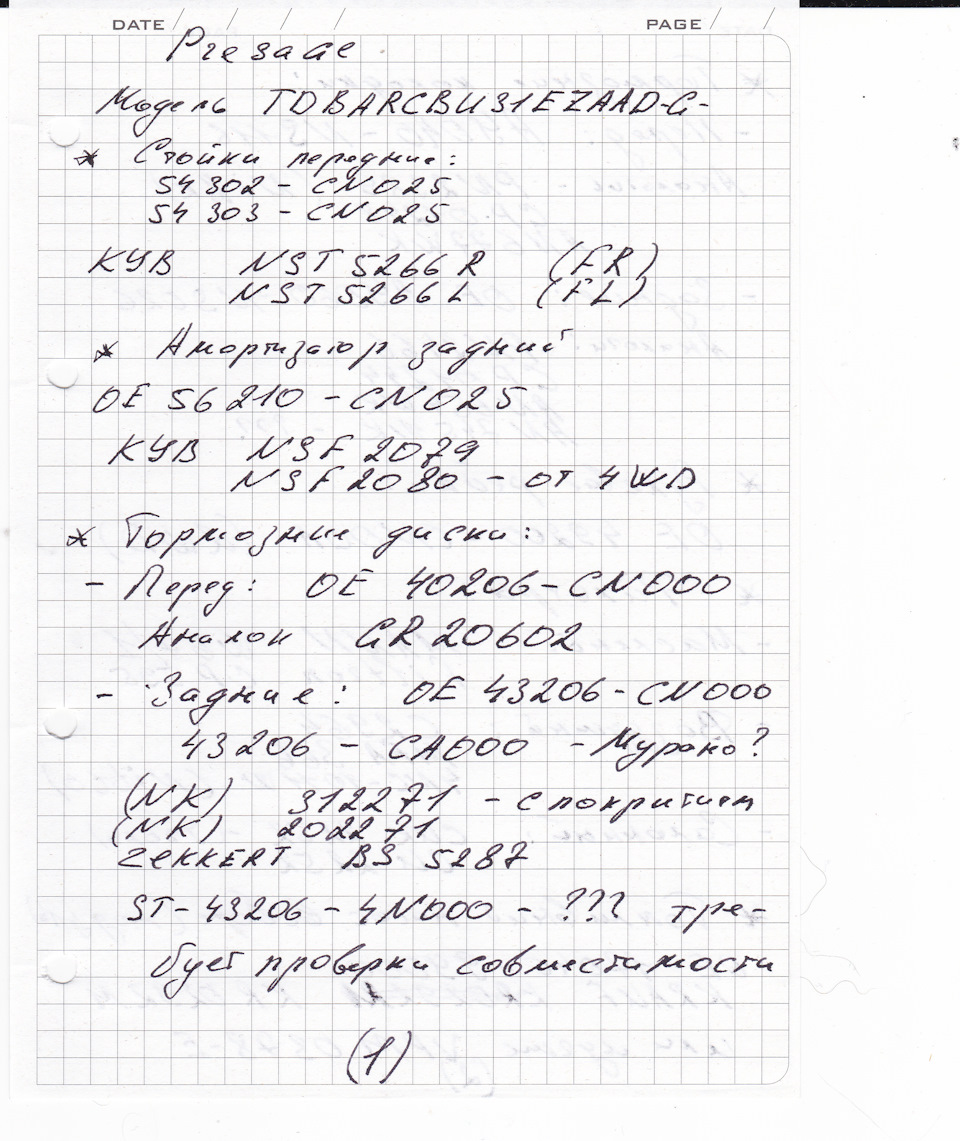 DATE / / / PAGE / /
Presage
Модель TDBARCBU31EZAAD-G-
* Стойки передние:
54302 - CN025
54303 - CN025
KYB NST 5266 R (FR)
NST 5266 L (FL)
* Амортизатор задний
OE 56210 - CN025
KYB NSF 2079
NSF 2080 - от 4WD
* Тормозные диски:
- Перед: OE 40206-CN000
Аналог GR 20602
- Задние: OE 43206-CN000
43206 - CA000 - Мурано?
(NK) 312271 - с покритием
(NK) 202271
ZeKKERT BS 5287
ST-43206-4N000-??? тре-
бует проверки совместимости
(1)